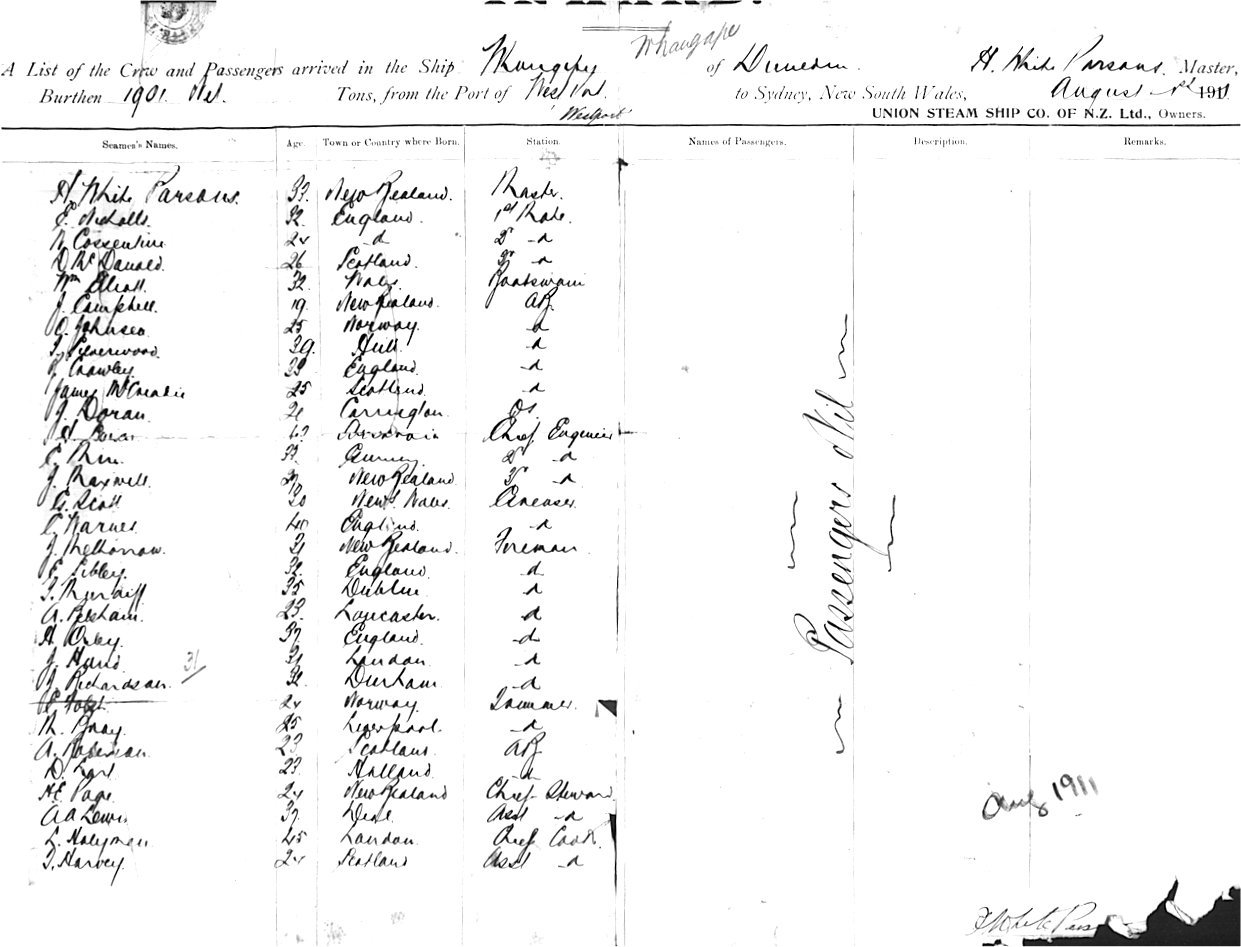 Whangape
A List of the Crew and Passengers arrived in the Ship Whangape of Dunedin H. White Parsons, Master,
Burthen 1901 Net. Tons, from the Port of West Port to Sydney, New South Wales, August 1st 1911
'Westport'
UNION STEAM SHIP CO. OF N.Z. Ltd., Owners.
Seamen's Names. Age. Town or Country where Born. Station. Names of Passengers. Description. Remarks.
H. White Parsons. 33 New Zealand. Master.
E. Nicholls. 32 England. 1st Mate.
Cossentine 24 -d 2d -d
D McDonald 26 Scotland. 3d -d
Wm Elliott. 32 Wales. Boatswain
J. Campbell. 19 New Zealand. AB.
O. Johnsen 25 Norway. -d
Silverwood. 39. Hull -d
Crawley. 39 England. -d
James McCreadie 25 Scotland. -d
J. Doran. Carrington. OS.
H. Chief Engineer
C. 2d -d
J. Maxwell. New Zealand. 3d -d
G. Scott 30 New S Wales. Greaser.
C. Warner 40 England. -d
J. 31 New Zealand. Fireman.
E. Sibley. 32 England. -d
35 Dublin. -d
A. Pelsham. 23. Lancaster. -d
H. Oxley. 37 England. -d
J. Hand 31 London. -d
31
J. Richardson. 32 Durham. -d
24 Norway. Trimmer.
M. Bray. 25 Liverpool. -d
A. Robinson 23 Scotland. AB
D. 23 Holland. -d
H.E. Page. 24 New Zealand Chief Steward.
A A Lewis 37 Deal. Asst -d
L. Holyman 45 London. Chief Cook.
T. Harvey. 24 Scotland Asst -d
Passengers Nil
Aug 1911
H White Pars